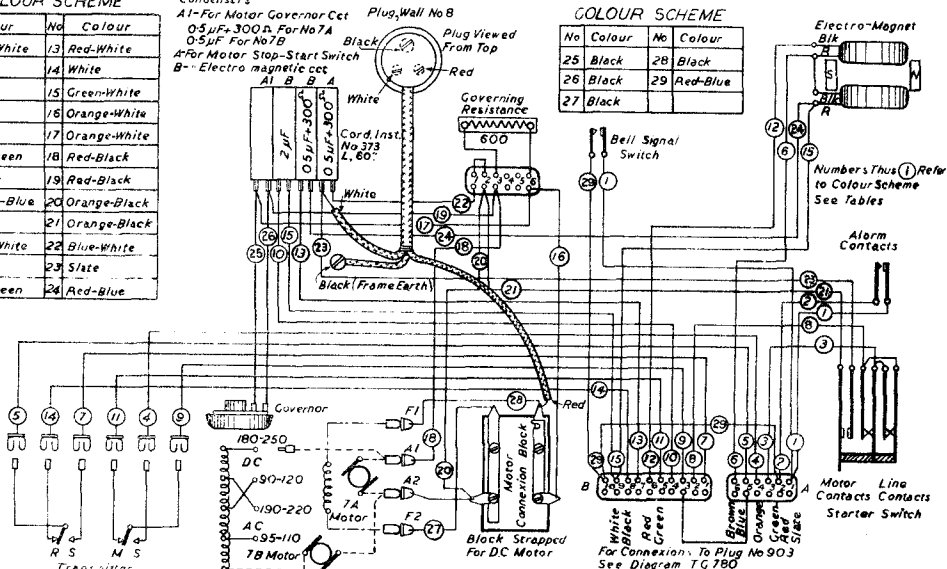 COLOUR SCHEME
No Colour
White 13 Red-White
14 White
15 Green-White
16 Orange-White
17 Orange-White
18 Red-Black
19 Red-Black
-Blue 20 Orange-Black
21 Orange-Black
White 22 Blue-White
23 Slate
24 Red-Blue
Condensers
A1-For Motor Governor Cct
0·5µF+300Ω For No7A
0·5µF For No7B
A-For Motor Stop-Start Switch
B- Electro magnetic cct
A1 B B A
2µF
0·5µF+300
0·5µF+300
Plug, Wall No 8
Plug Viewed
From Top
Black
Red
White
Cord, Inst.
No 373
L, 60"
White
Black (Frame Earth)
Red
Governing
Resistance
600
1 2 3 4 5 6
COLOUR SCHEME
No Colour No Colour
25 Black 28 Black
26 Black 29 Red-Blue
27 Black
Bell Signal
Switch
29 1
Electro-Magnet
Blk
B
S N
Blk
R
12 6 24 15
Numbers Thus 1 Refer
to Colour Scheme
See Tables
Alarm
Contacts
22 19 17 24 18 20 21 16
25 26 10 15 13 23
23 21 2 1 8 3
5 14 7 11 4 9
Governor
180-250
DC
90-120
190-220
AC
95-110
7A
Motor
7B Motor
F1
A1
A2
F2
28 18 20 27
Motor
Connexion Block
Block Strapped
For DC Motor
14 29
29 15 13 12 11 10 9 8 7
6 5 4 3 2 1
B A
White
Black
Red
Green
Brown
Blue
Orange
Green
Red
Slate
For Connexions To Plug No 903
See Diagram TG 780
Motor Line
Contacts Contacts
Starter Switch
R S M S